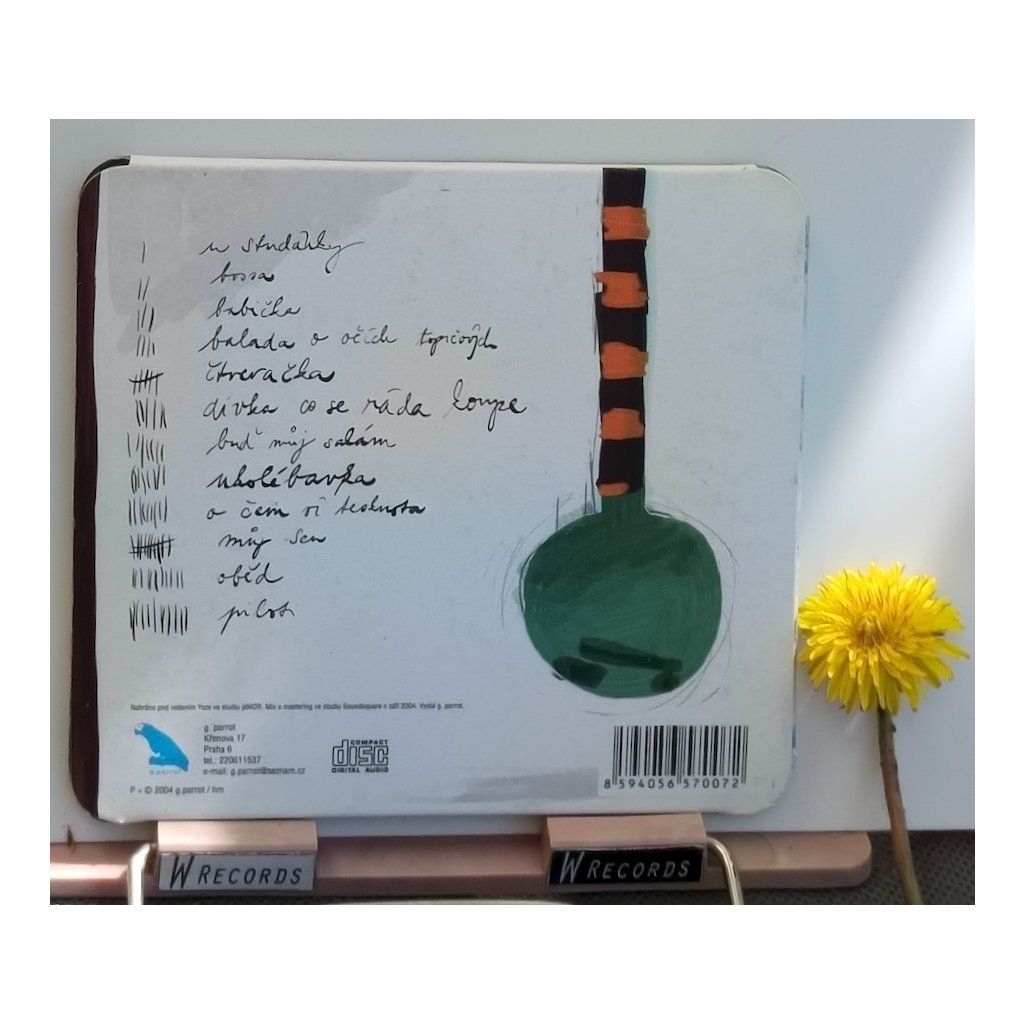 u studánky
bossa
babička
balada o očích topičových
čtveračka
dívka co se ráda koupe
buď můj salám
ukolébavka
o čem ví teolnosta
můj sen
oběd
pilot
Nahráno pod vedením Yoze ve studiu JÁMOR. Mix a mastering ve studiu Soundsquare v září 2004. Vydal g. parrot.
g. parrot
Křenova 17
Praha 6
tel.: 220611537
e-mail: g.parrot@seznam.cz
g.parrot
COMPACT
disc
DIGITAL AUDIO
P + © 2004 g.parrot / hm
8 594056 570072
W RECORDS
W RECORDS